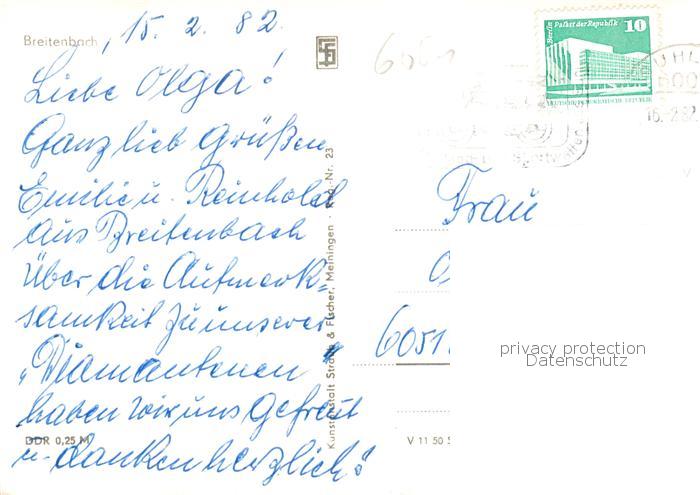 Breitenbach, 15. 2. 82.
Liebe Olga!
Ganz lieb Grüßen
Emilie u. Reinhold
aus Breitenbach
Über die Aufmerk=
samkeit zu unserer
„Diamantenen"
haben wir uns gefreut
u. danken herzlich!
DDR 0,25 M
Kunstanstalt Straub & Fischer, Meiningen · Reg.-Nr. 23
Berlin Palast der Republik 10
DEUTSCHE DEMOKRATISCHE REPUBLIK
UHL
600
16.-2.82
Frau
6051
V 11 50
privacy protection
Datenschutz